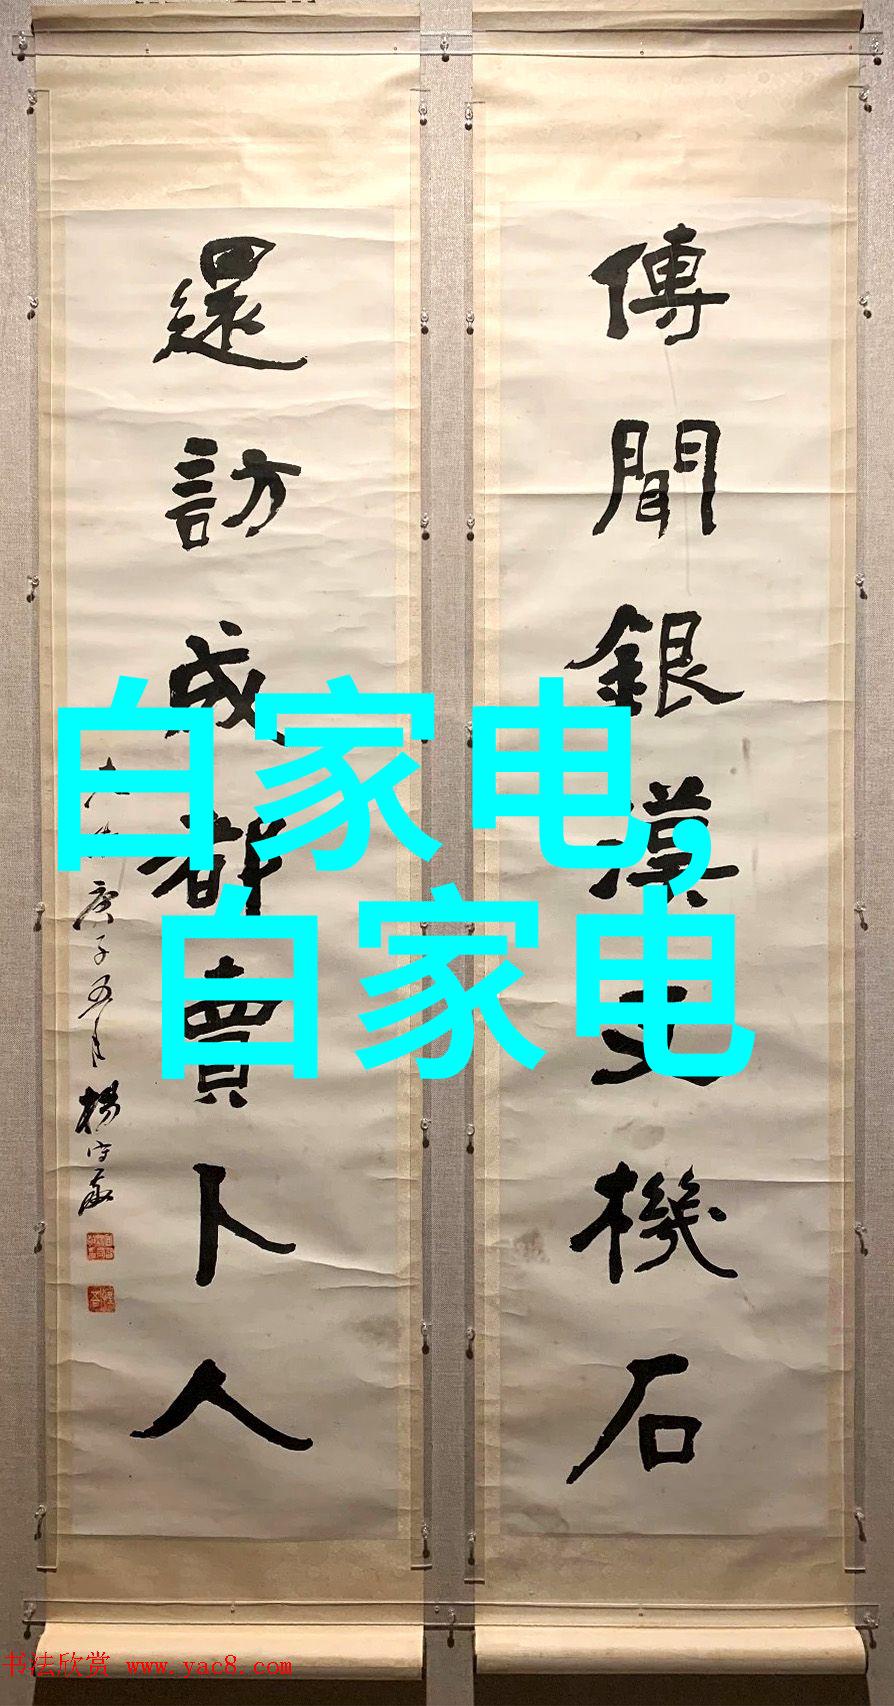 傳聞銀漢支機石
還訪成都賣卜人
庚子五月楊守敬
白家电,
白家电
书法欣赏 www.yac8.com